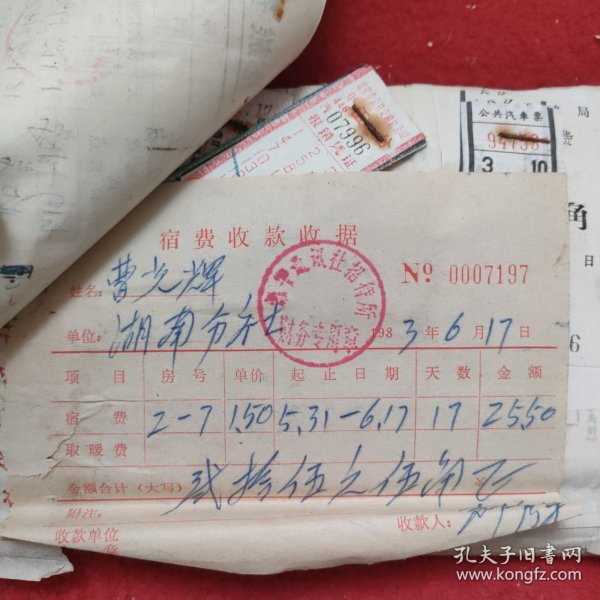 07996
报销凭证
公共汽車票
94738
3
10
局
角
日
宿费收款收据
新华通讯社招待所
财务专用章
№ 0007197
姓名: 曹光辉
单位: 湖南分社
1983年6月17日
项目 房号 单价 起止日期 天数 金额
宿费 2-7 1.50 5.31-6.17 17 25.50
取暖费
金额合计(大写) 贰拾伍元伍角正
附注:
收款单位
章
收款人:
孔夫子旧书网
www.kongfz.com